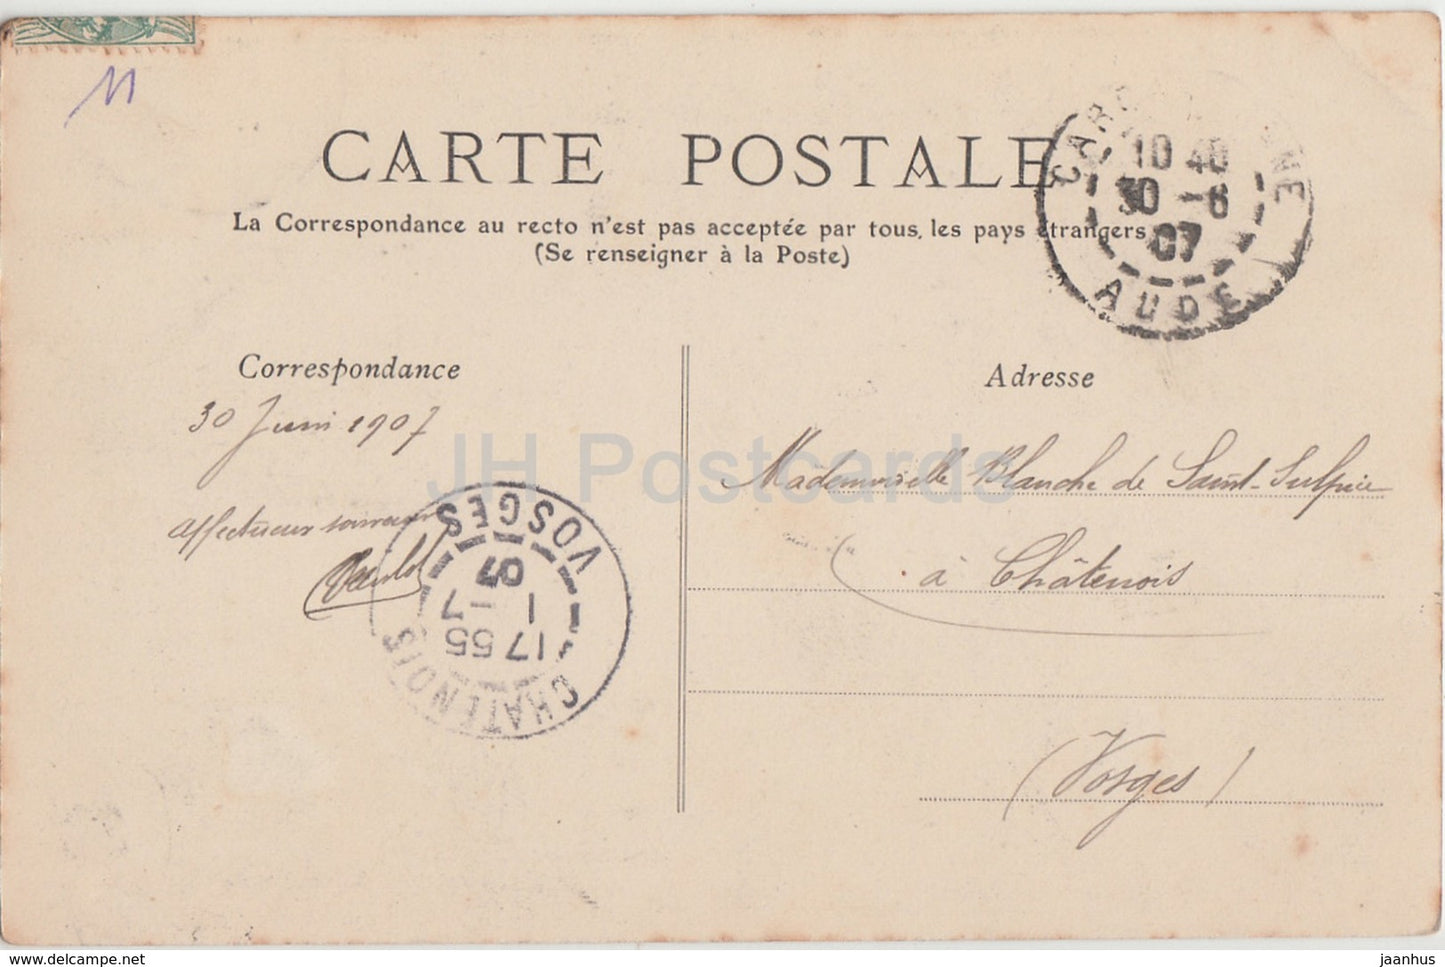 11
CARTE POSTALE
La Correspondance au recto n'est pas acceptée par tous, les pays étrangers
(Se renseigner à la Poste)
10 40
30 - 6
07
AUDE
Correspondance
Adresse
30 Juin 1907
affectueux souvenir
VOSGES
CHATENOIS
17 55
1 - 7
07
Mademoiselle Blanche de Saint-Sulpice
à Châtenois
(Vosges)
JH Postcards
www.delcampe.net
jaanhus